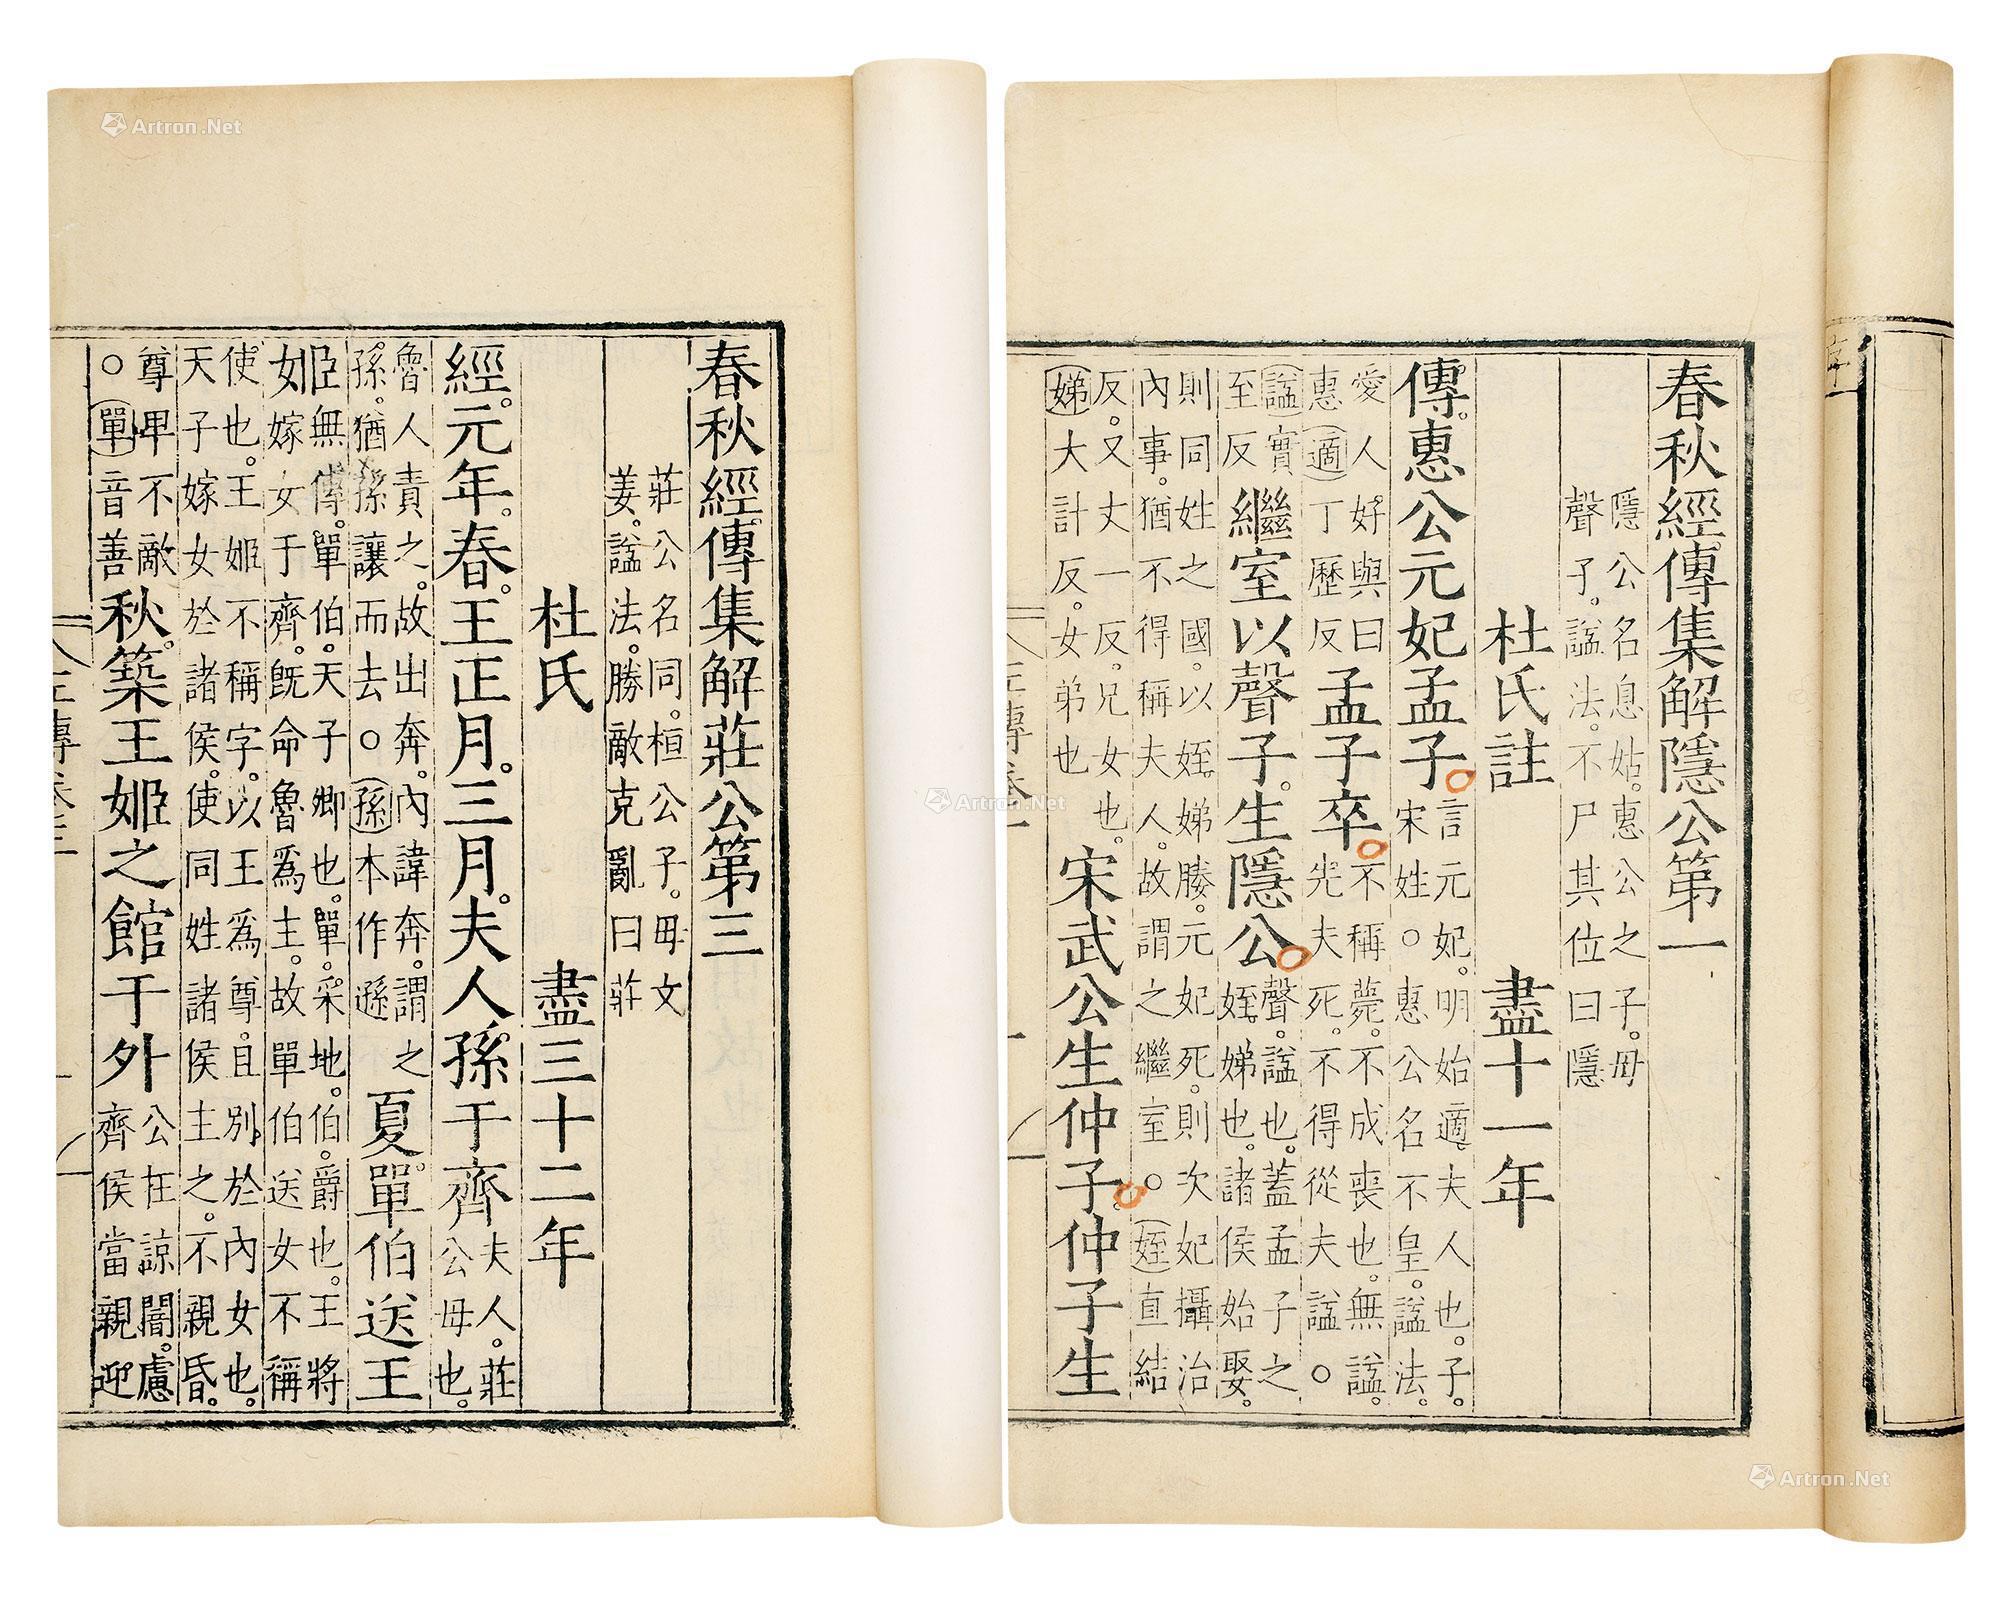 春秋經傳集解隱公第一
隱公名息姑。惠公之子。毋
聲子。謚法。不尸其位曰隱
杜氏註　盡十一年
傳。惠公元妃孟子。
言元妃。明始適夫人也。子。
宋姓。○惠公名不皇。謚法。
愛人好與曰
惠適丁歷反
孟子卒。
不稱薨。不成喪也。無謚。
先夫死。不得從夫謚。○
謚實
至反
繼室以聲子。生隱公。
聲。謚也。蓋孟子之
姪娣也。諸侯始娶。
則同姓之國。以姪娣媵。元妃死。則次妃攝治
內事。猶不得稱夫人。故謂之繼室。○姪直結
反。又丈一反。兄女也。
娣大計反。女弟也
宋武公生仲子。仲子生
春秋經傳集解莊公第三
莊公名同。桓公子。毋文
姜。謚法。勝敵克亂曰莊
杜氏　盡三十二年
經。元年。春。王正月。三月。夫人孫于齊
夫人。莊
公母也。
魯人責之。故出奔。內諱奔。謂之
孫。猶孫讓而去。○孫本作遜
夏。單伯送王
姬
無傳。單伯。天子卿也。單。采地。伯。爵也。王將
嫁女于齊。既命魯爲主。故單伯送女不稱
使也。王姬不稱字。以王爲尊。且別於內女也。
天子嫁女於諸侯。使同姓諸侯主之。不親昏。
尊卑不敵
○單音善
秋。築王姬之館于外
公在諒闇。慮
齊侯當親迎
Artron.Net
Artron.Net
Artron.Net